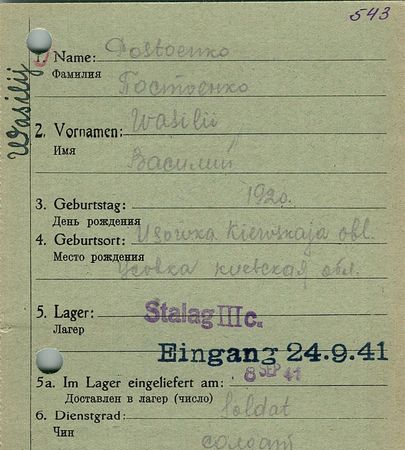 543
Wasilij
1. Name: Postoenko
Фамилия Постоенко
2. Vornamen: Wasilii
Имя Василий
3. Geburtstag: 1920.
День рождения
4. Geburtsort: Usowka Kiewskaja obl.
Место рождения Усовка киевская обл.
5. Lager: Stalag III c.
Лагерь
Eingang 24.9.41
8 SEP 41
5a. Im Lager eingeliefert am:
Доставлен в лагерь (число)
6. Dienstgrad: Soldat
Чин солдат